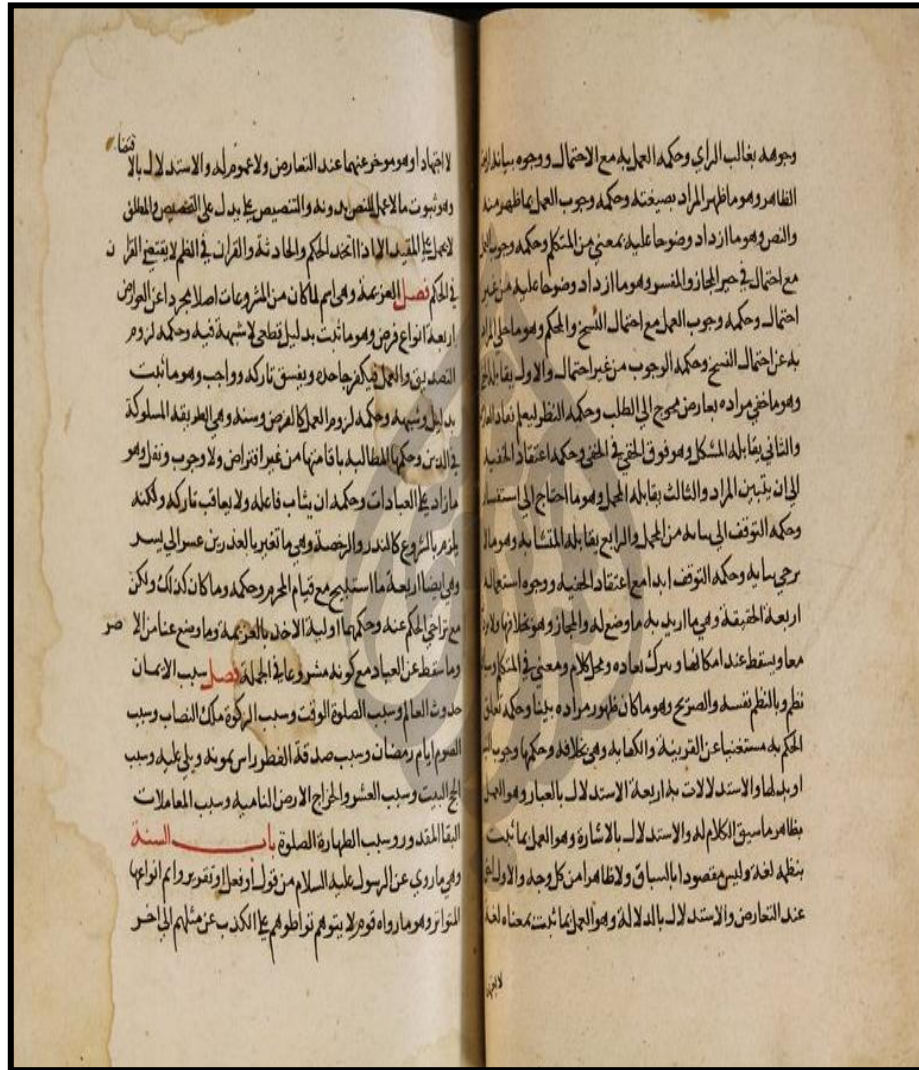 وجوهه بغالب الراي وحكمه العمل به مع الاحتمال ووجوه بيانه اربعة
الظاهر وهو ما ظهر المراد بصيغته وحكمه وجوب العمل بما ظهر منه
والنص وهو ما ازداد وضوحا عليه بمعني من المتكلم وحكمه وجوب العمل
مع احتمال في حيز المجاز والمفسر وهو ما ازداد وضوحا عليه من غير
احتمال وحكمه وجوب العمل مع احتمال النسخ والمحكم وهو ما خلي المراد
به عن احتمال النسخ وحكمه الوجوب من غير احتمال والاول يقابله الخفي
وهو ما خفي مراده بعارض محوج الي الطلب وحكمه النظر ليعلم
والثاني يقابله المشكل وهو فوق الخفي في الخفي وحكمه اعتقاد الحقية
الي ان يتبين المراد والثالث يقابله المجمل وهو ما احتاج الي استفسار
وحكمه التوقف الي بيانه من المجمل والرابع يقابله المتشابه وهو مالا
يرجي بيانه وحكمه التوقف ابدا مع اعتقاد الحقية ووجوه استعماله
اربعة الحقيقة وهي ما اريد به ما وضع له والمجاز وهو خلافها ولا يراد
معا ويسقط عند امكانها وتترك بعاده ومحل كلام ومعني في المتكلم وسياق
نظم وبالنظم نفسه والصريح وهو ما كان ظهور مراده بينا وحكمه تعلق
الحكم به مستغنيا عن القرينة والكنايه وهي بخلافه وحكمها وجوب
او بدلها والاستدلالات به اربعة الاستدلال بالعبار وهو العمل
بظاهر ما سيق الكلام له والاستدلال بالاشارة وهو العمل بما ثبت
بنظمه لغة وليس مقصودا بالسياق ولا ظاهرا من كل وجه والاول
عند التعارض والاستدلال بالدلالة وهو العمل بما ثبت بمعناه لغة
لا اجتهادا
لا اجتهادا وهو موخر عنهما عند التعارض ولا عموم له والاستدلال بالا قتضا
وهو ثبوت ما لا عمل للنص بدونه والتنصيص علي يدل علي التخصيص والمطلق
لا يحمل علي المقيد الا اذا اتخد الحكم والحادثة والقران في النظم لا يقتضي القرا ن
في الحكم فصل العزيمة وهي اسم لما كان من المشروعات اصلا مجردا عن العوارض
اربعة انواع فرض وهو ما ثبت بدليل قطعي لا شبهة فيه وحكمه لزوم
التصديق والعمل فيكفر جاحده ويفسق تاركه وواجب وهو ما ثبت
بدليل وشبهه وحكمه لزوم العمل كالفرض وسنه وهي الطريقه المسلوكة
في الدين وحكمها المطالبه باقامتها من غير افتراض ولا وجوب ونفل وهو
ما زاد علي العبادات وحكمه ان يثاب فاعله ولا يعاقب تاركه ولكنه
يلزم بالشروع كالنذر والرخصة وهي ما تغير بالعذر من عسر الي يسر
وهي ايضا اربعة ما استبيح مع قيام المحرم وحكمه وما كان كذلك ولكن
مع تراخي الحكم عنه وحكمهما اولية الاخذ بالعزيمة وما وضع عنا من الا صر
وما سقط عن العباد مع كونه مشروعا في الجملة فصل سبب الايمان
حدوث العالم وسبب الصلوة الوقت وسبب الزكوة ملك النصاب وسبب
الصوم ايام رمضان وسبب صدقة الفطر راس يمونه ويلي عليه وسبب
الحج البيت وسبب العشر والخراج الارض الناميه وسبب المعاملات
البقا المقدور وسبب الطهارة الصلوة باب السنة
وهي ما روي عن الرسول عليه السلام من قول او فعل او تقرير وانم انواعها
المتواتر وهو ما رواه قوم لا يتوهم تواطوهم علي الكذب عن مثلهم الي اخر